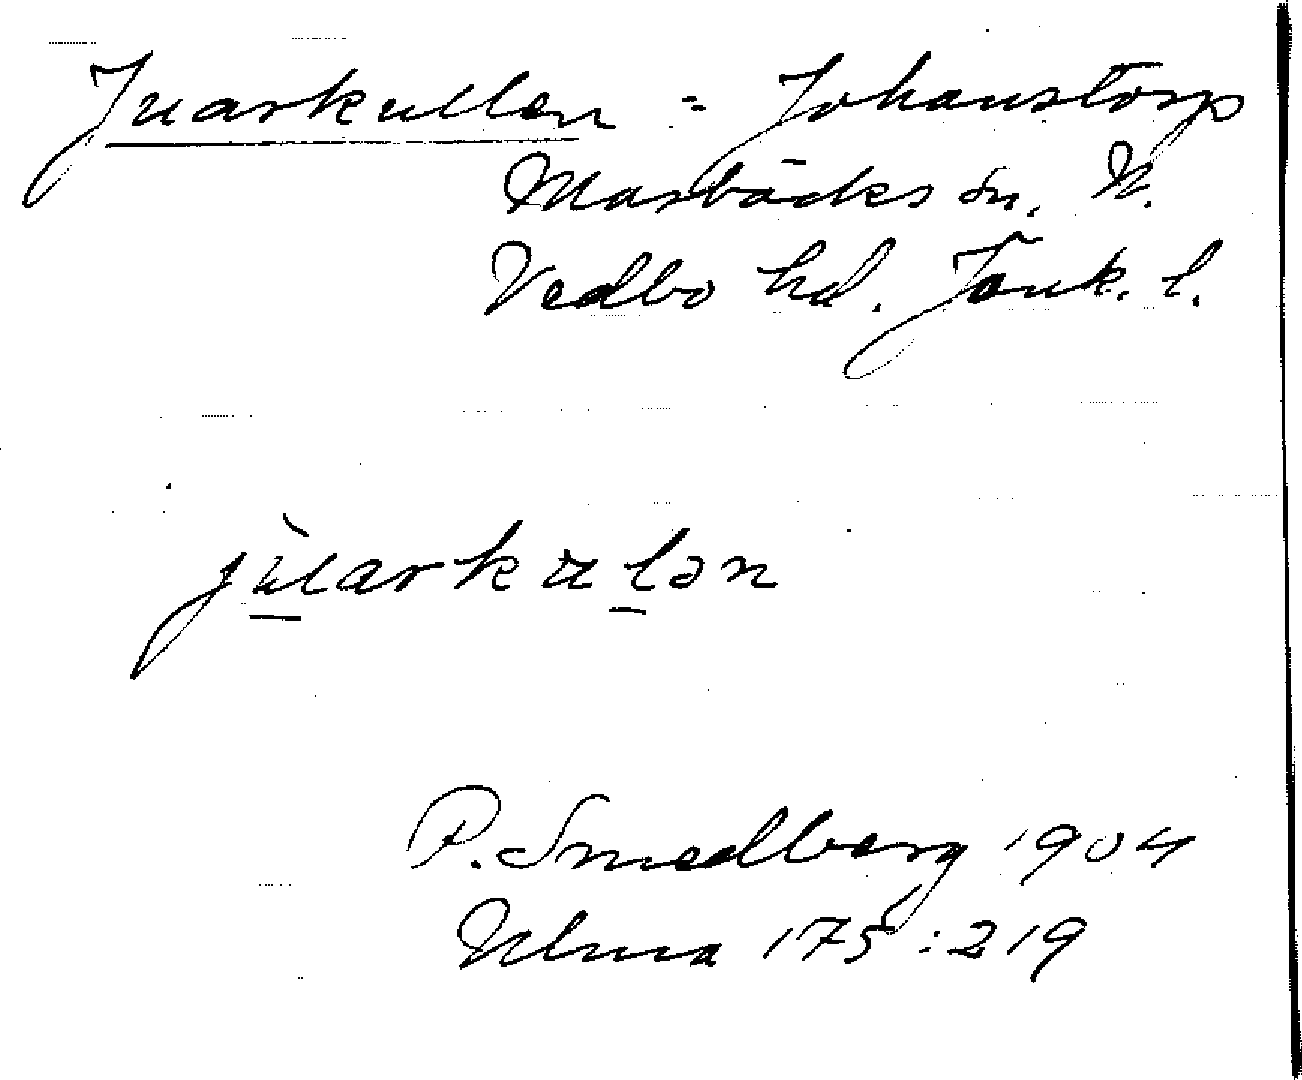 Juarkullen = Johanstorp
Marbäcks sn. N.
Vedbo hd. Jönk. l.
jùarkuլən
P. Smedberg 1904
Ulma 175:219